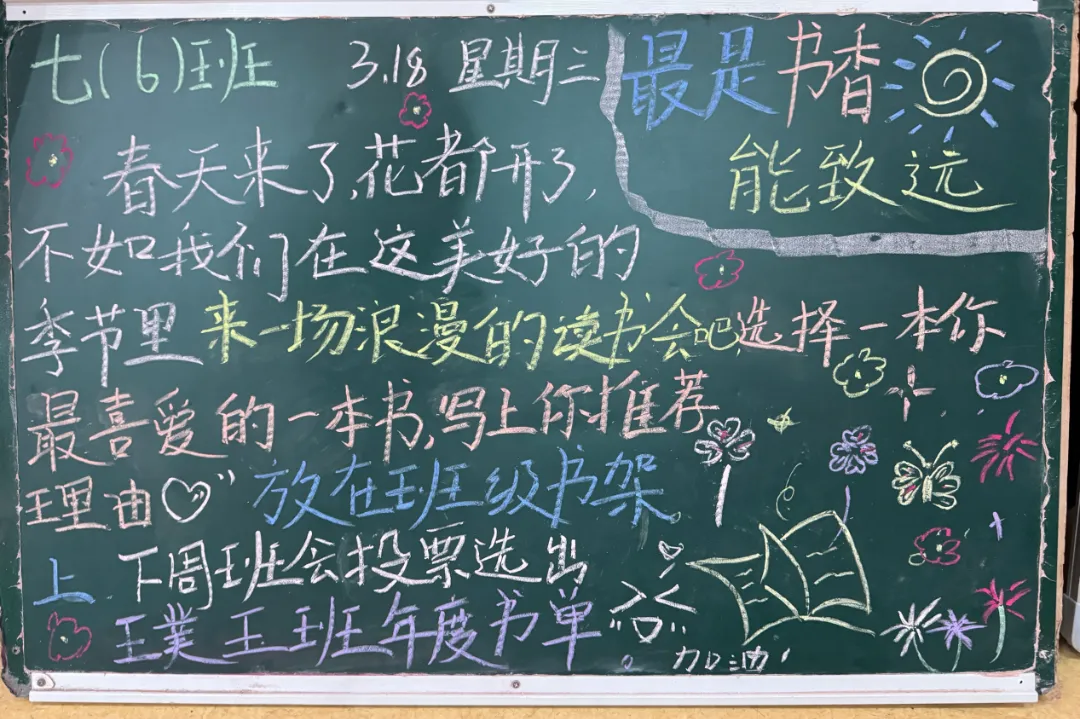 七(6)班 3.18 星期三
最是书香
能致远
春天来了,花都开了,
不如我们在这美好的
季节里来一场浪漫的读书会吧,选择一本你
最喜爱的一本书,写上你推荐
理由 放在班级书架
上 下周班会投票选出
王 王班年度书单
加油!